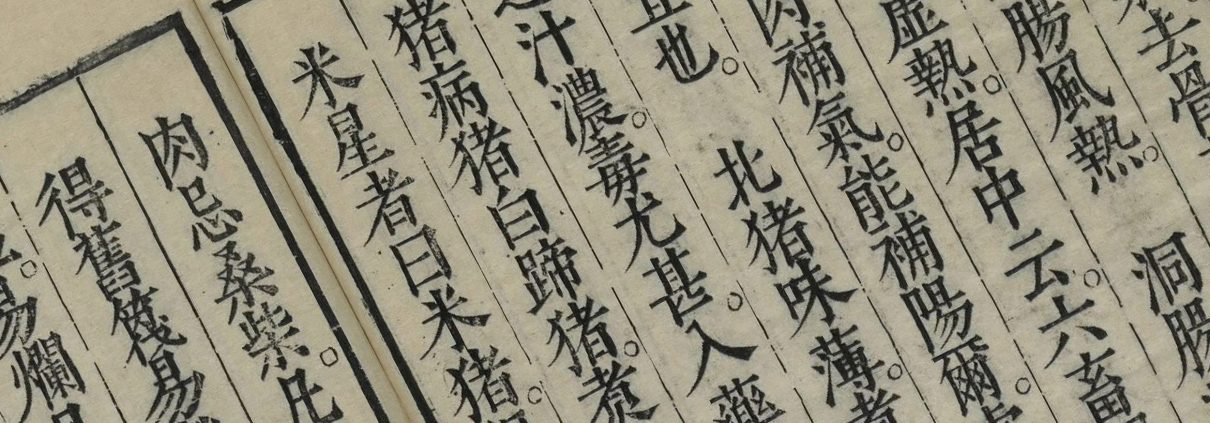 去骨
腸風熱。 洞腸
虛熱。居中云。六畜
肉補氣。能補陽爾。
也。 北猪味薄。煮
汁濃。毒尤甚。入藥
猪病猪白蹄猪。煑
米星者曰米猪。
肉忌桑柴。凡
得舊篾易
易爛